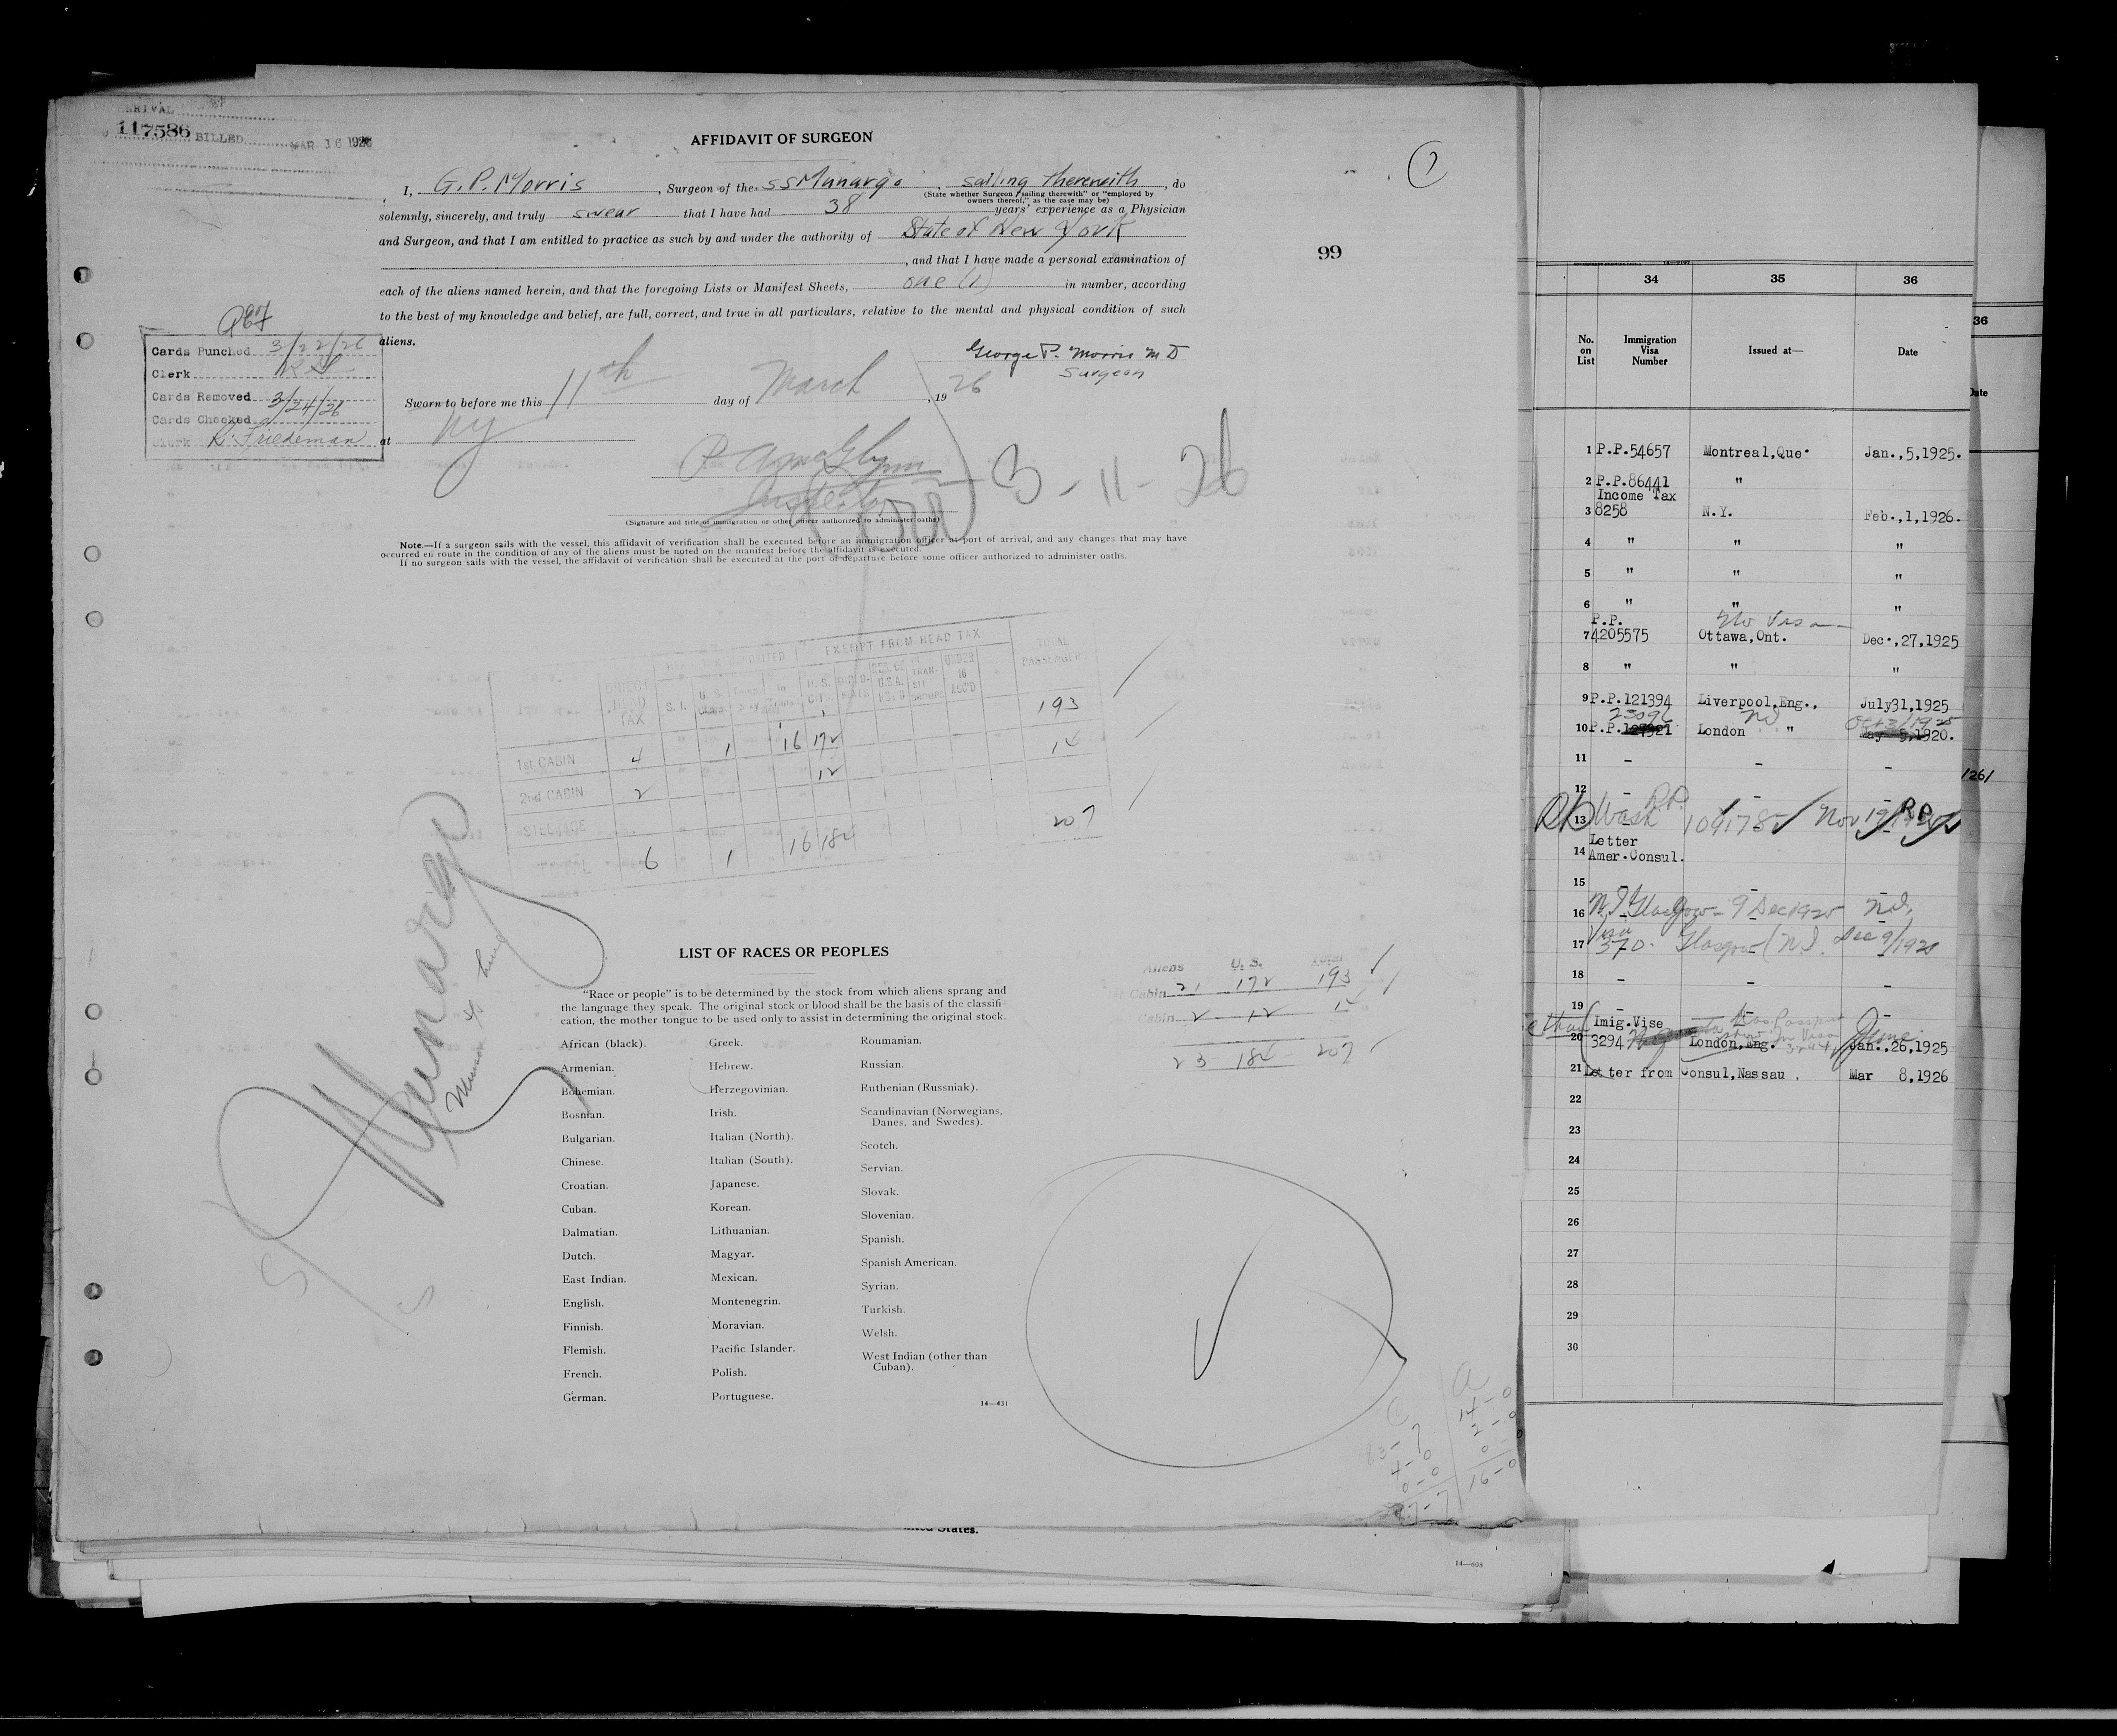 117586 BILLED MAR 16 1926
AFFIDAVIT OF SURGEON
1
I, G. P. Morris, Surgeon of the SS Munargo, sailing therewith, do
(State whether Surgeon "sailing therewith" or "employed by
owners thereof," as the case may be)
solemnly, sincerely, and truly swear that I have had 38 years' experience as a Physician
and Surgeon, and that I am entitled to practice as such by and under the authority of State of New York
, and that I have made a personal examination of
99
each of the aliens named herein, and that the foregoing Lists or Manifest Sheets, one (1) in number, according
to the best of my knowledge and belief, are full, correct, and true in all particulars, relative to the mental and physical condition of such
aliens.
George P. Morris M D
Surgeon
Cards Punched 3/22/26
Clerk
Cards Removed 3/24/26
Cards Checked
Clerk R. Friedeman
Sworn to before me this 11th day of March, 1926
at NY
Inspector
3-11-26
(Signature and title of immigration or other officer authorized to administer oaths)
Note.—If a surgeon sails with the vessel, this affidavit of verification shall be executed before an immigration officer at port of arrival, and any changes that may have
occurred en route in the condition of any of the aliens must be noted on the manifest before the affidavit is executed.
If no surgeon sails with the vessel, the affidavit of verification shall be executed at the port of departure before some officer authorized to administer oaths.
EXEMPT FROM HEAD TAX
DIRECT HEAD TAX
S. I.
U. S.
TOTAL PASSENGER
1st CABIN 4 1 16 172 193
2nd CABIN 2 12 14
STEERAGE
TOTAL 6 1 16 184 207
Munargo
Munson
LIST OF RACES OR PEOPLES
"Race or people" is to be determined by the stock from which aliens sprang and
the language they speak. The original stock or blood shall be the basis of the classifi-
cation, the mother tongue to be used only to assist in determining the original stock.
Aliens U. S. Total
Cabin 21 172 193
Cabin 2 12 14
23 184 207
African (black).
Armenian.
Bohemian.
Bosnian.
Bulgarian.
Chinese.
Croatian.
Cuban.
Dalmatian.
Dutch.
East Indian.
English.
Finnish.
Flemish.
French.
German.
Greek.
Hebrew.
Herzegovinian.
Irish.
Italian (North).
Italian (South).
Japanese.
Korean.
Lithuanian.
Magyar.
Mexican.
Montenegrin.
Moravian.
Pacific Islander.
Polish.
Portuguese.
Roumanian.
Russian.
Ruthenian (Russniak).
Scandinavian (Norwegians,
Danes, and Swedes).
Scotch.
Servian.
Slovak.
Slovenian.
Spanish.
Spanish American.
Syrian.
Turkish.
Welsh.
West Indian (other than
Cuban).
14—431
a
14-0
2-0
0-0
16-0
83-7
4-0
0-0
States.
34 35 36
No. on List
Immigration Visa Number
Issued at—
Date
1 P.P.54657 Montreal,Que. Jan.,5,1925.
2 P.P.86441 "
Income Tax
3 8258 N.Y. Feb.,1,1926.
4 " " "
5 " " "
6 " " "
P.P. No Visa
7 4205575 Ottawa,Ont. Dec.,27,1925
8 " " "
9 P.P.121394 Liverpool,Eng., July31,1925
10 P.P. London " May 5,1920.
11 - - -
12 - -
13 Wash 109178 Nov 19
R.P.
Letter
14 Amer.Consul.
15 - -
16 Glasgow - 9 Dec 1925
Visa
17 370. Glasgow Dec 9/1925
18 - - -
19 - - -
Imig.Vise
20 3294 London,Eng. Jan.,26,1925
21 Letter from Consul,Nassau. Mar 8,1926
22
23
24
25
26
27
28
29
30
36
Date
/26/